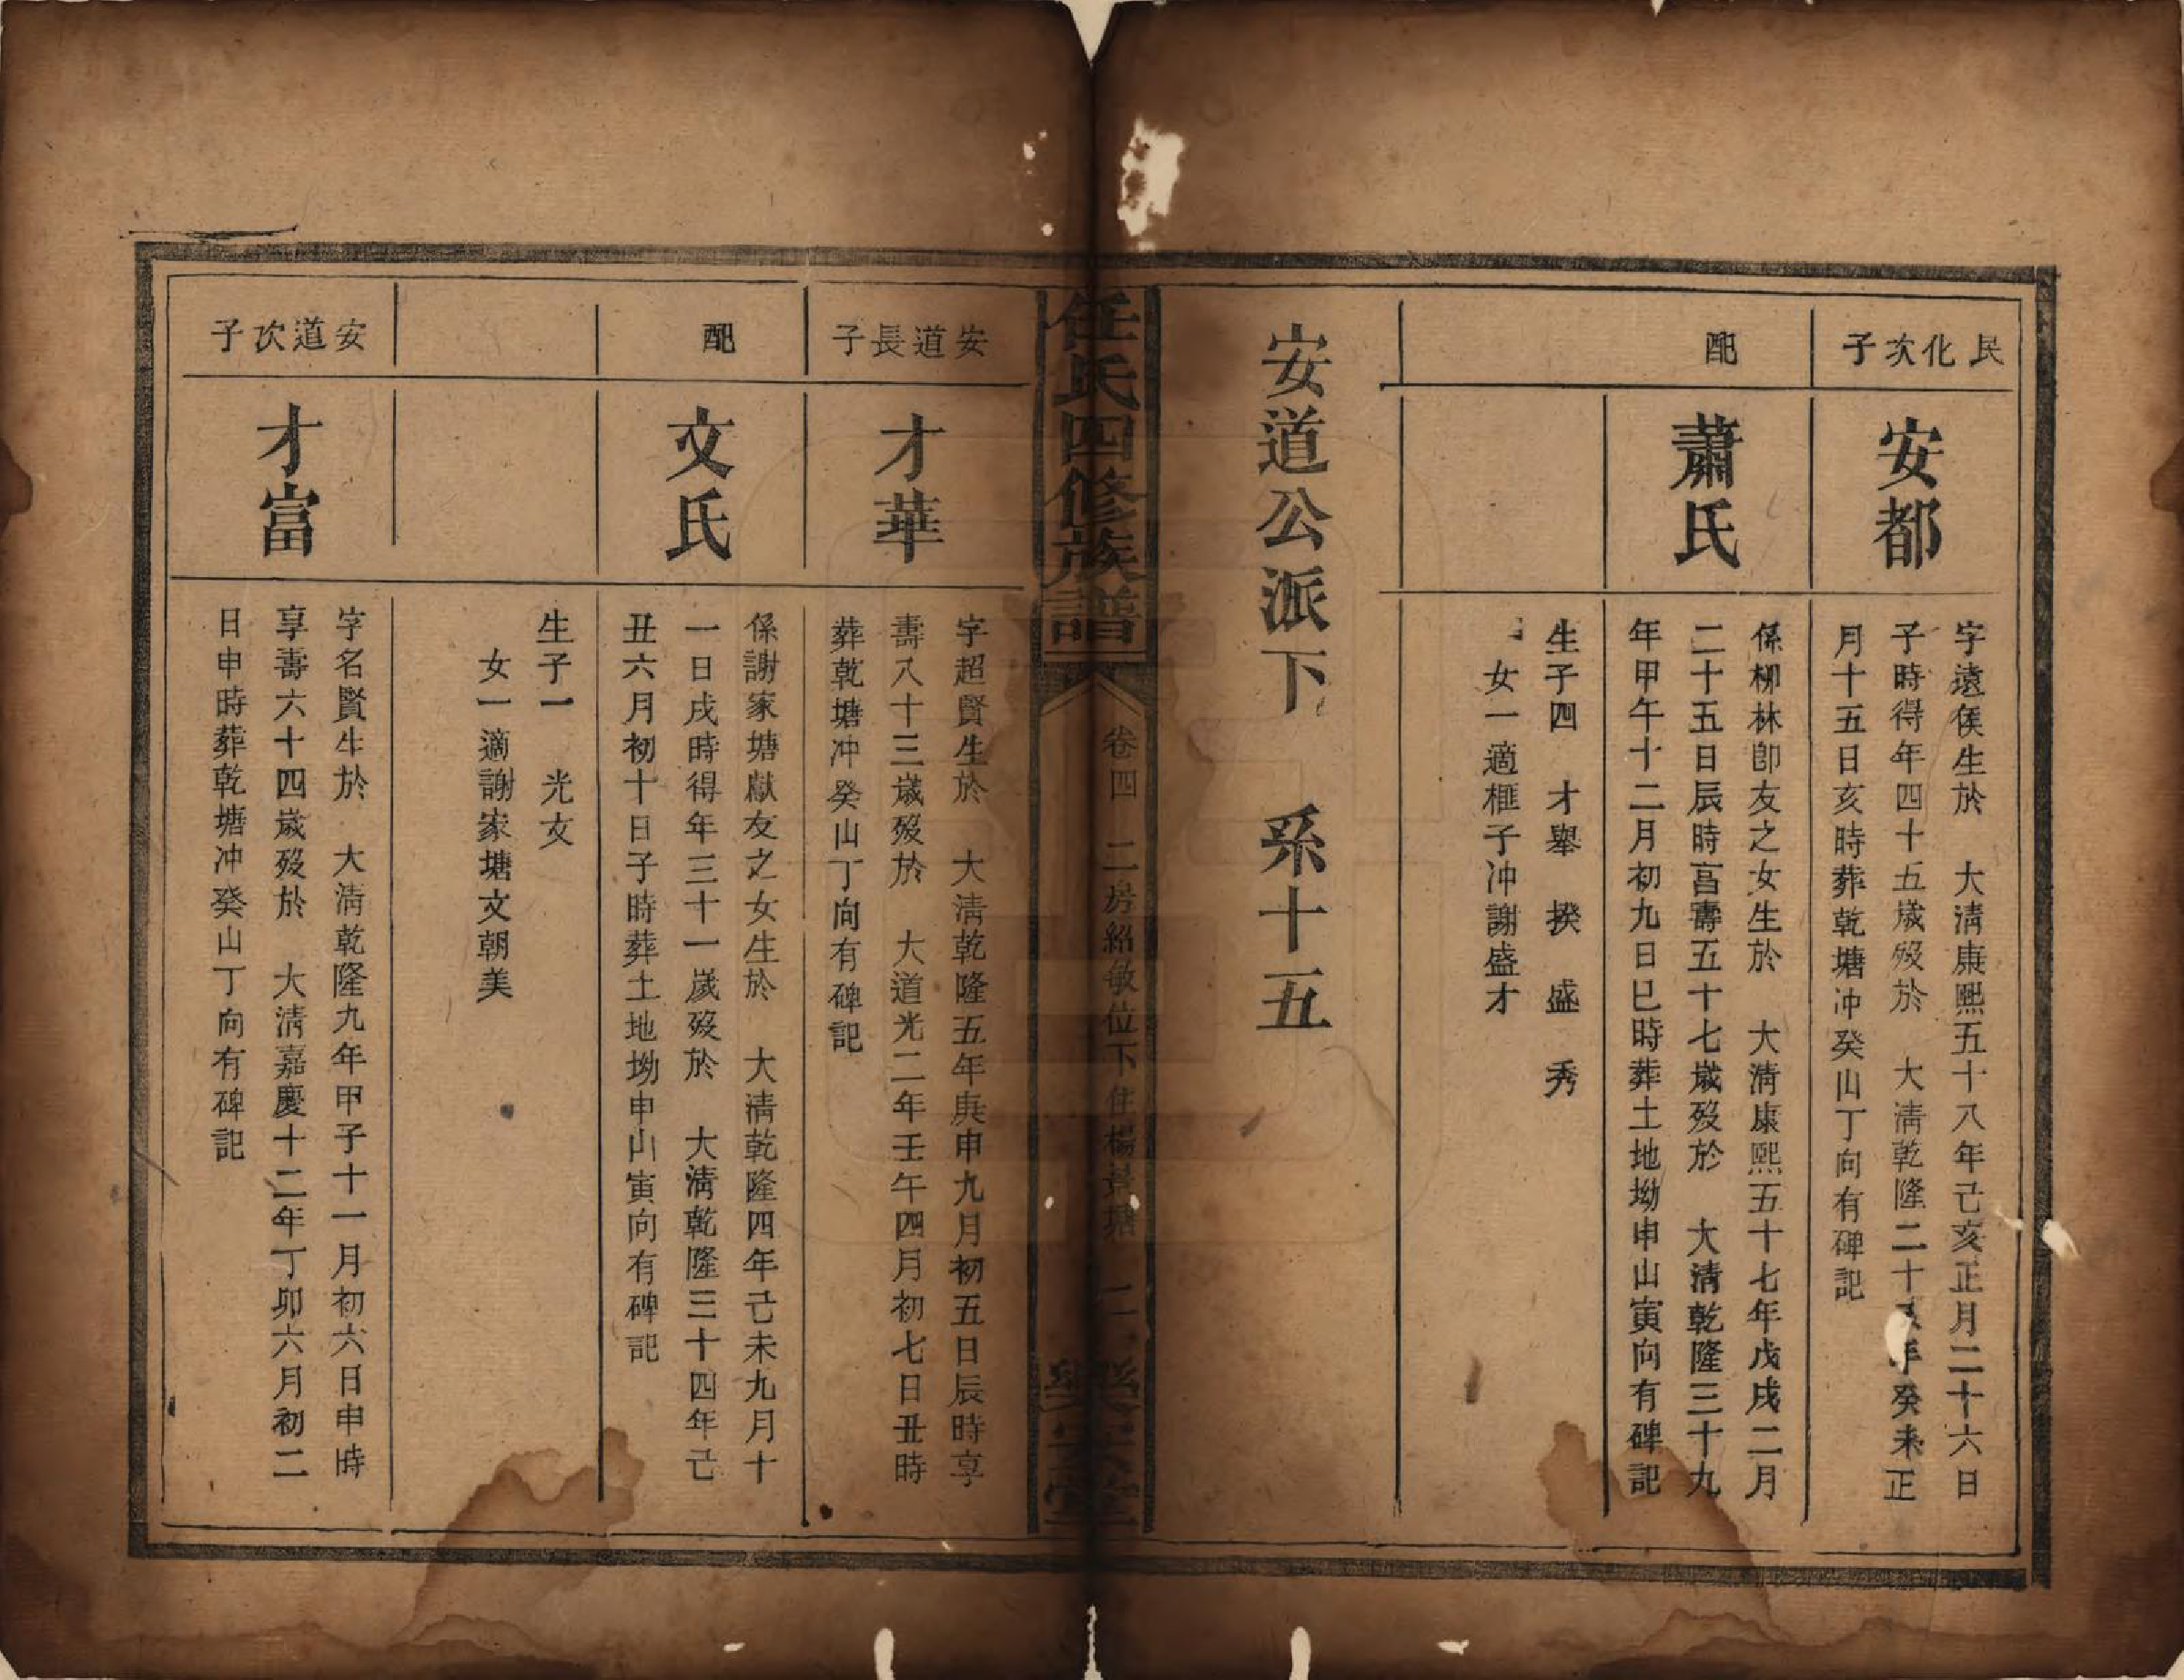 民化次子
安都
字遠侯生於　大淸康熙五十八年己亥正月二十六日
子時得年四十五歲歿於　大淸乾隆二十年癸未正
月十五日亥時葬乾塘冲癸山丁向有碑記
配
蕭氏
係柳林卽友之女生於　大淸康熙五十七年戊戌二月
二十五日辰時亯壽五十七歲歿於　大淸乾隆三十九
年甲午十二月初九日巳時葬土地坳申山寅向有碑記
生子四　才舉　揆　盛　秀
女一適框子冲謝盛才
安道公派下　系十五
任氏四修族譜
卷四　二房紹敏位下住楊塘　二
樂安堂
安道長子
才華
字超賢生於　大淸乾隆五年庚申九月初五日辰時享
壽八十三歲歿於　大道光二年壬午四月初七日丑時
葬乾塘冲癸山丁向有碑記
配
文氏
係謝家塘獻友之女生於　大淸乾隆四年己未九月十
一日戌時得年三十一歲歿於　大淸乾隆三十四年己
丑六月初十日子時葬土地坳申山寅向有碑記
生子一　光文
女一適謝家塘文朝美
安道次子
才富
字名賢生於　大淸乾隆九年甲子十一月初六日申時
享壽六十四歲歿於　大淸嘉慶十二年丁卯六月初二
日申時葬乾塘冲癸山丁向有碑記